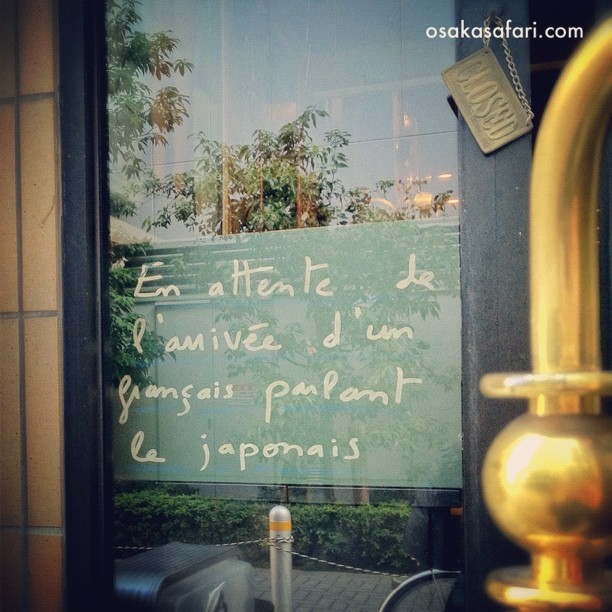 osakasafari.com
CLOSED
En attente de
l'arrivée d'un
français parlant
le japonais